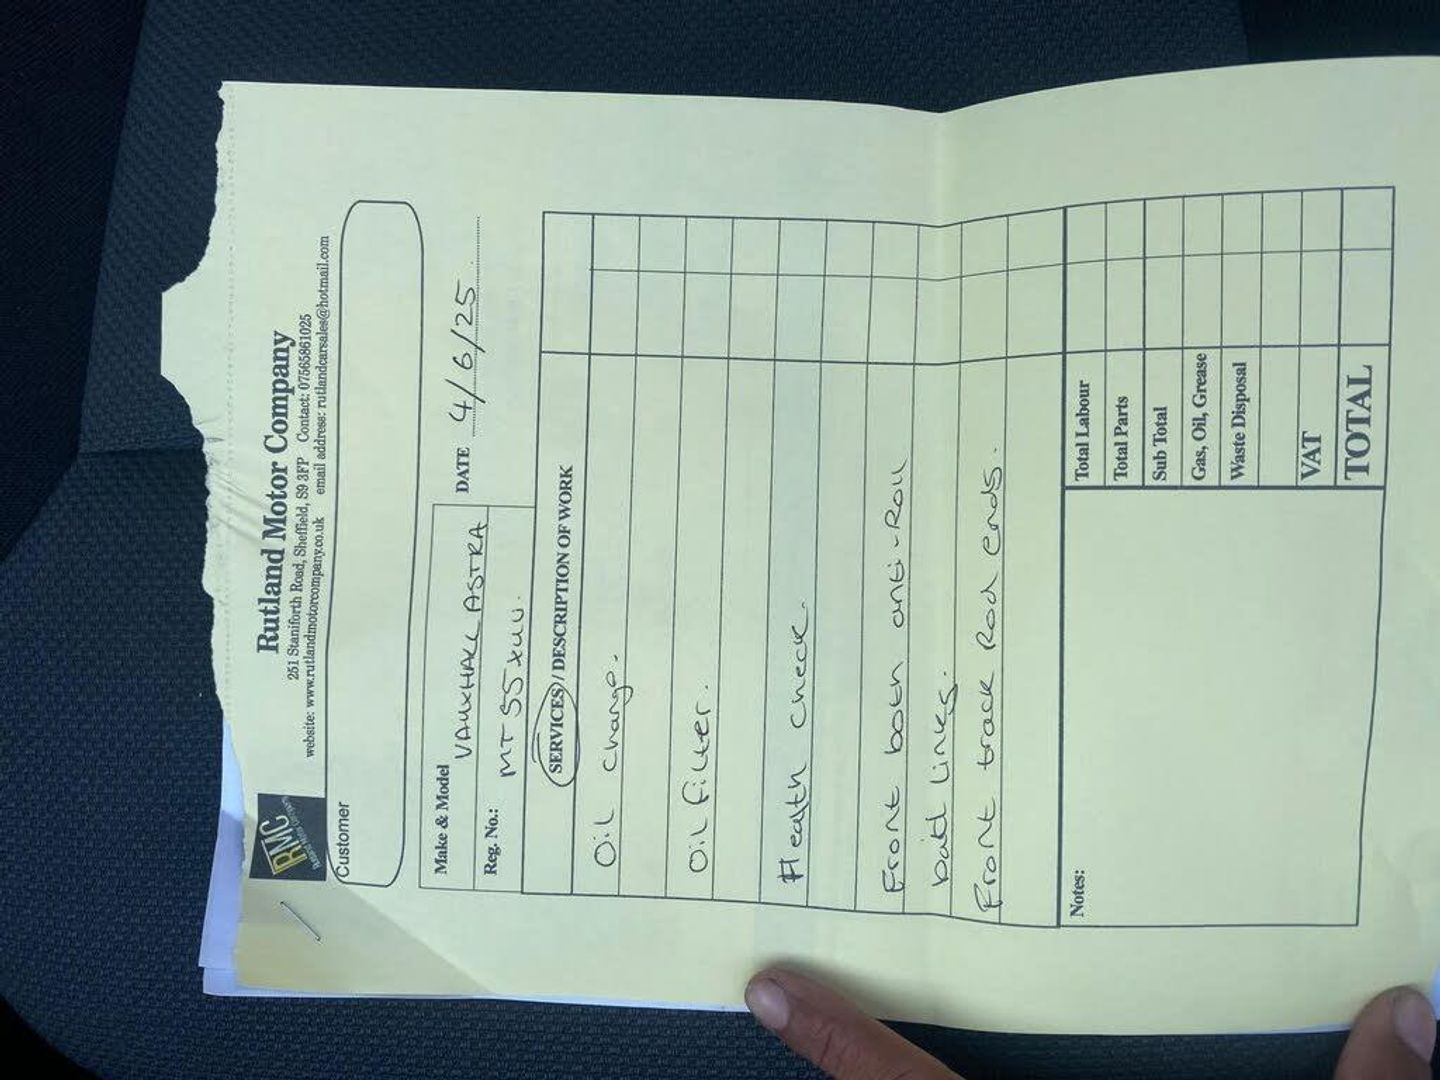 Rutland Motor Company
251 Staniforth Road, Sheffield, S9 3FP Contact: 07565861025
website: www.rutlandmotorcompany.co.uk email address: rutlandcarsales@hotmail.com
RMC
Rutland Motor Company
Customer
Make & Model VAUXHALL ASTRA
DATE 4/6/25
Reg. No.: MT55XUU.
SERVICES / DESCRIPTION OF WORK
Oil change.
Oil filter.
Health check.
Front both anti-Roll
bald links.
Front track Rod ends.
Notes:
Total Labour
Total Parts
Sub Total
Gas, Oil, Grease
Waste Disposal
VAT
TOTAL